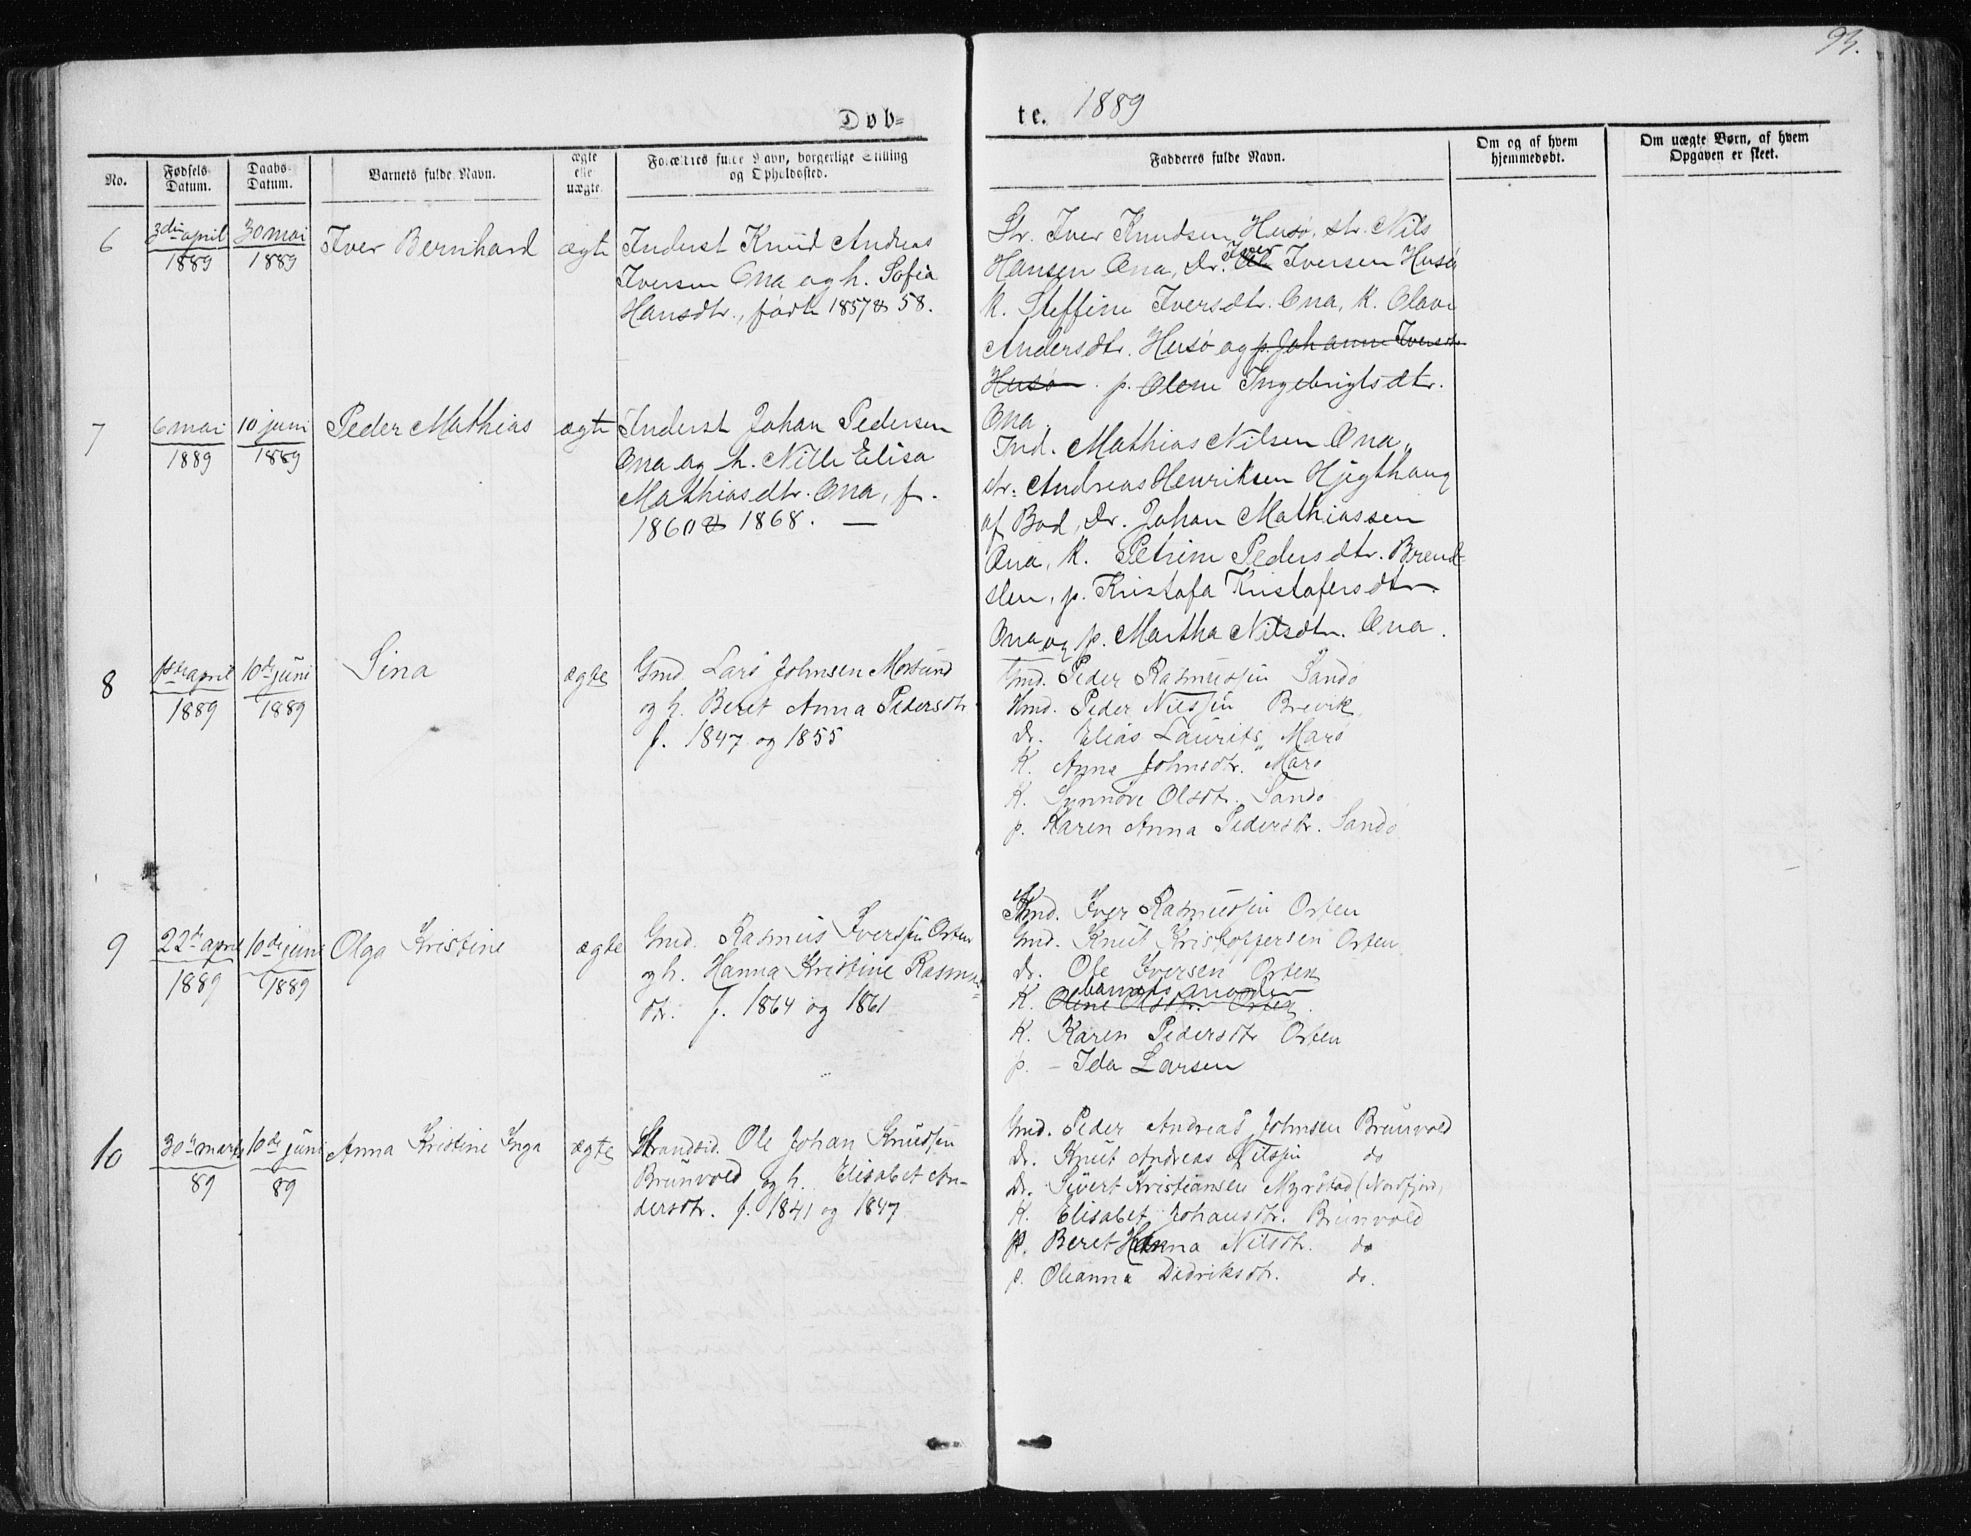 93.
Døb-
te. 1889
No.
Fødsels-
Datum.
Daabs-
Datum.
Barnets fulde Navn.
ægte
elle
uægte.
Forældres fulde Navn, borgerlige Stilling
og Opholdssted.
Fadderes fulde Navn.
Om og af hvem
hjemmedøbt.
Om uægte Børn, af hvem
Opgaven er skeet.
6
3die april
1889
30 mai
1889
Iver Bernhard
ægte
Inderst Knud Andreas
Iversen Ona og h. Sofia
Hansdtr., født 1857 & 58.
Str. Iver Knudsen Husø, str. Nils
Hansen Ona, Dr. Iver Iversen Husø
K. Steffine Iversdtr. Ona, K. Olave
Andersdtr. Husø og p. Johanne Iversdtr
Husø . p. Olene Ingebrigtsdtr.
Ona.
7
6 mai
1889
10 juni
1889
Peder Mathias
ægte
Inderst Johan Pedersen
Ona og h. Nille Elisa
Mathiasdtr. Ona, f.
1860 & 1868. —
Ind. Mathias Nilsen Ona,
str. Andreas Henriksen Hjegthaug
af Bod, Dr. Johan Mathiassen
Ona, K. Petrine Pedersdtr. Brend-
slen, p. Kristofa Kristofersdtr.
Ona og p. Martha Nilsdtr. Ona.
8
1ste april
1889
10de juni
1889
Sina
ægte
Gmd. Lars Johnsen Morsund
og h. Beret Anna Pedersdtr
f. 1847 og 1855
Gmd. Peder Rasmussen Sandø
Hmd. Peder Nilssen Brevik
Dr. Elias Laurits Marø
K. Anne Johnsdtr. Marø
K. Synnøve Olsdtr. Sandø
p. Karen Anna Pedersdtr. Sandø
9
22de april
1889
10de juni
1889
Olga Kristine
ægte
Gmd. Rasmus Iversen Orten
og h. Hanna Kristine Rasmus-
dtr. f. 1864 og 1861
Kmd. Iver Rasmussen Orten
Gmd. Knut Kristoffersen Orten
Dr. Ole Iversen Orten
barnets moder
K. Oline Olsdtr. Orten
K. Karen Pedersdtr Orten
p. - Ida Larsen
10
30te marts
89
10de juni
89
Anna Kristine Inga
ægte
Strandsid. Ole Johan Knudsen
Brunvold og h. Elisabet An-
dersdtr. f. 1841 og 1847
Gmd. Peder Andreas Johnsen Brunvold
Dr. Knut Andreas Nilsen do
Dr. Sivert Kristiansen Myrstad (Nordfjord)
K. Elisabet Johansdtr. Brunvold
p. Beret Hanna Nilsdtr. do
p. Oleanna Didriksdtr. do.